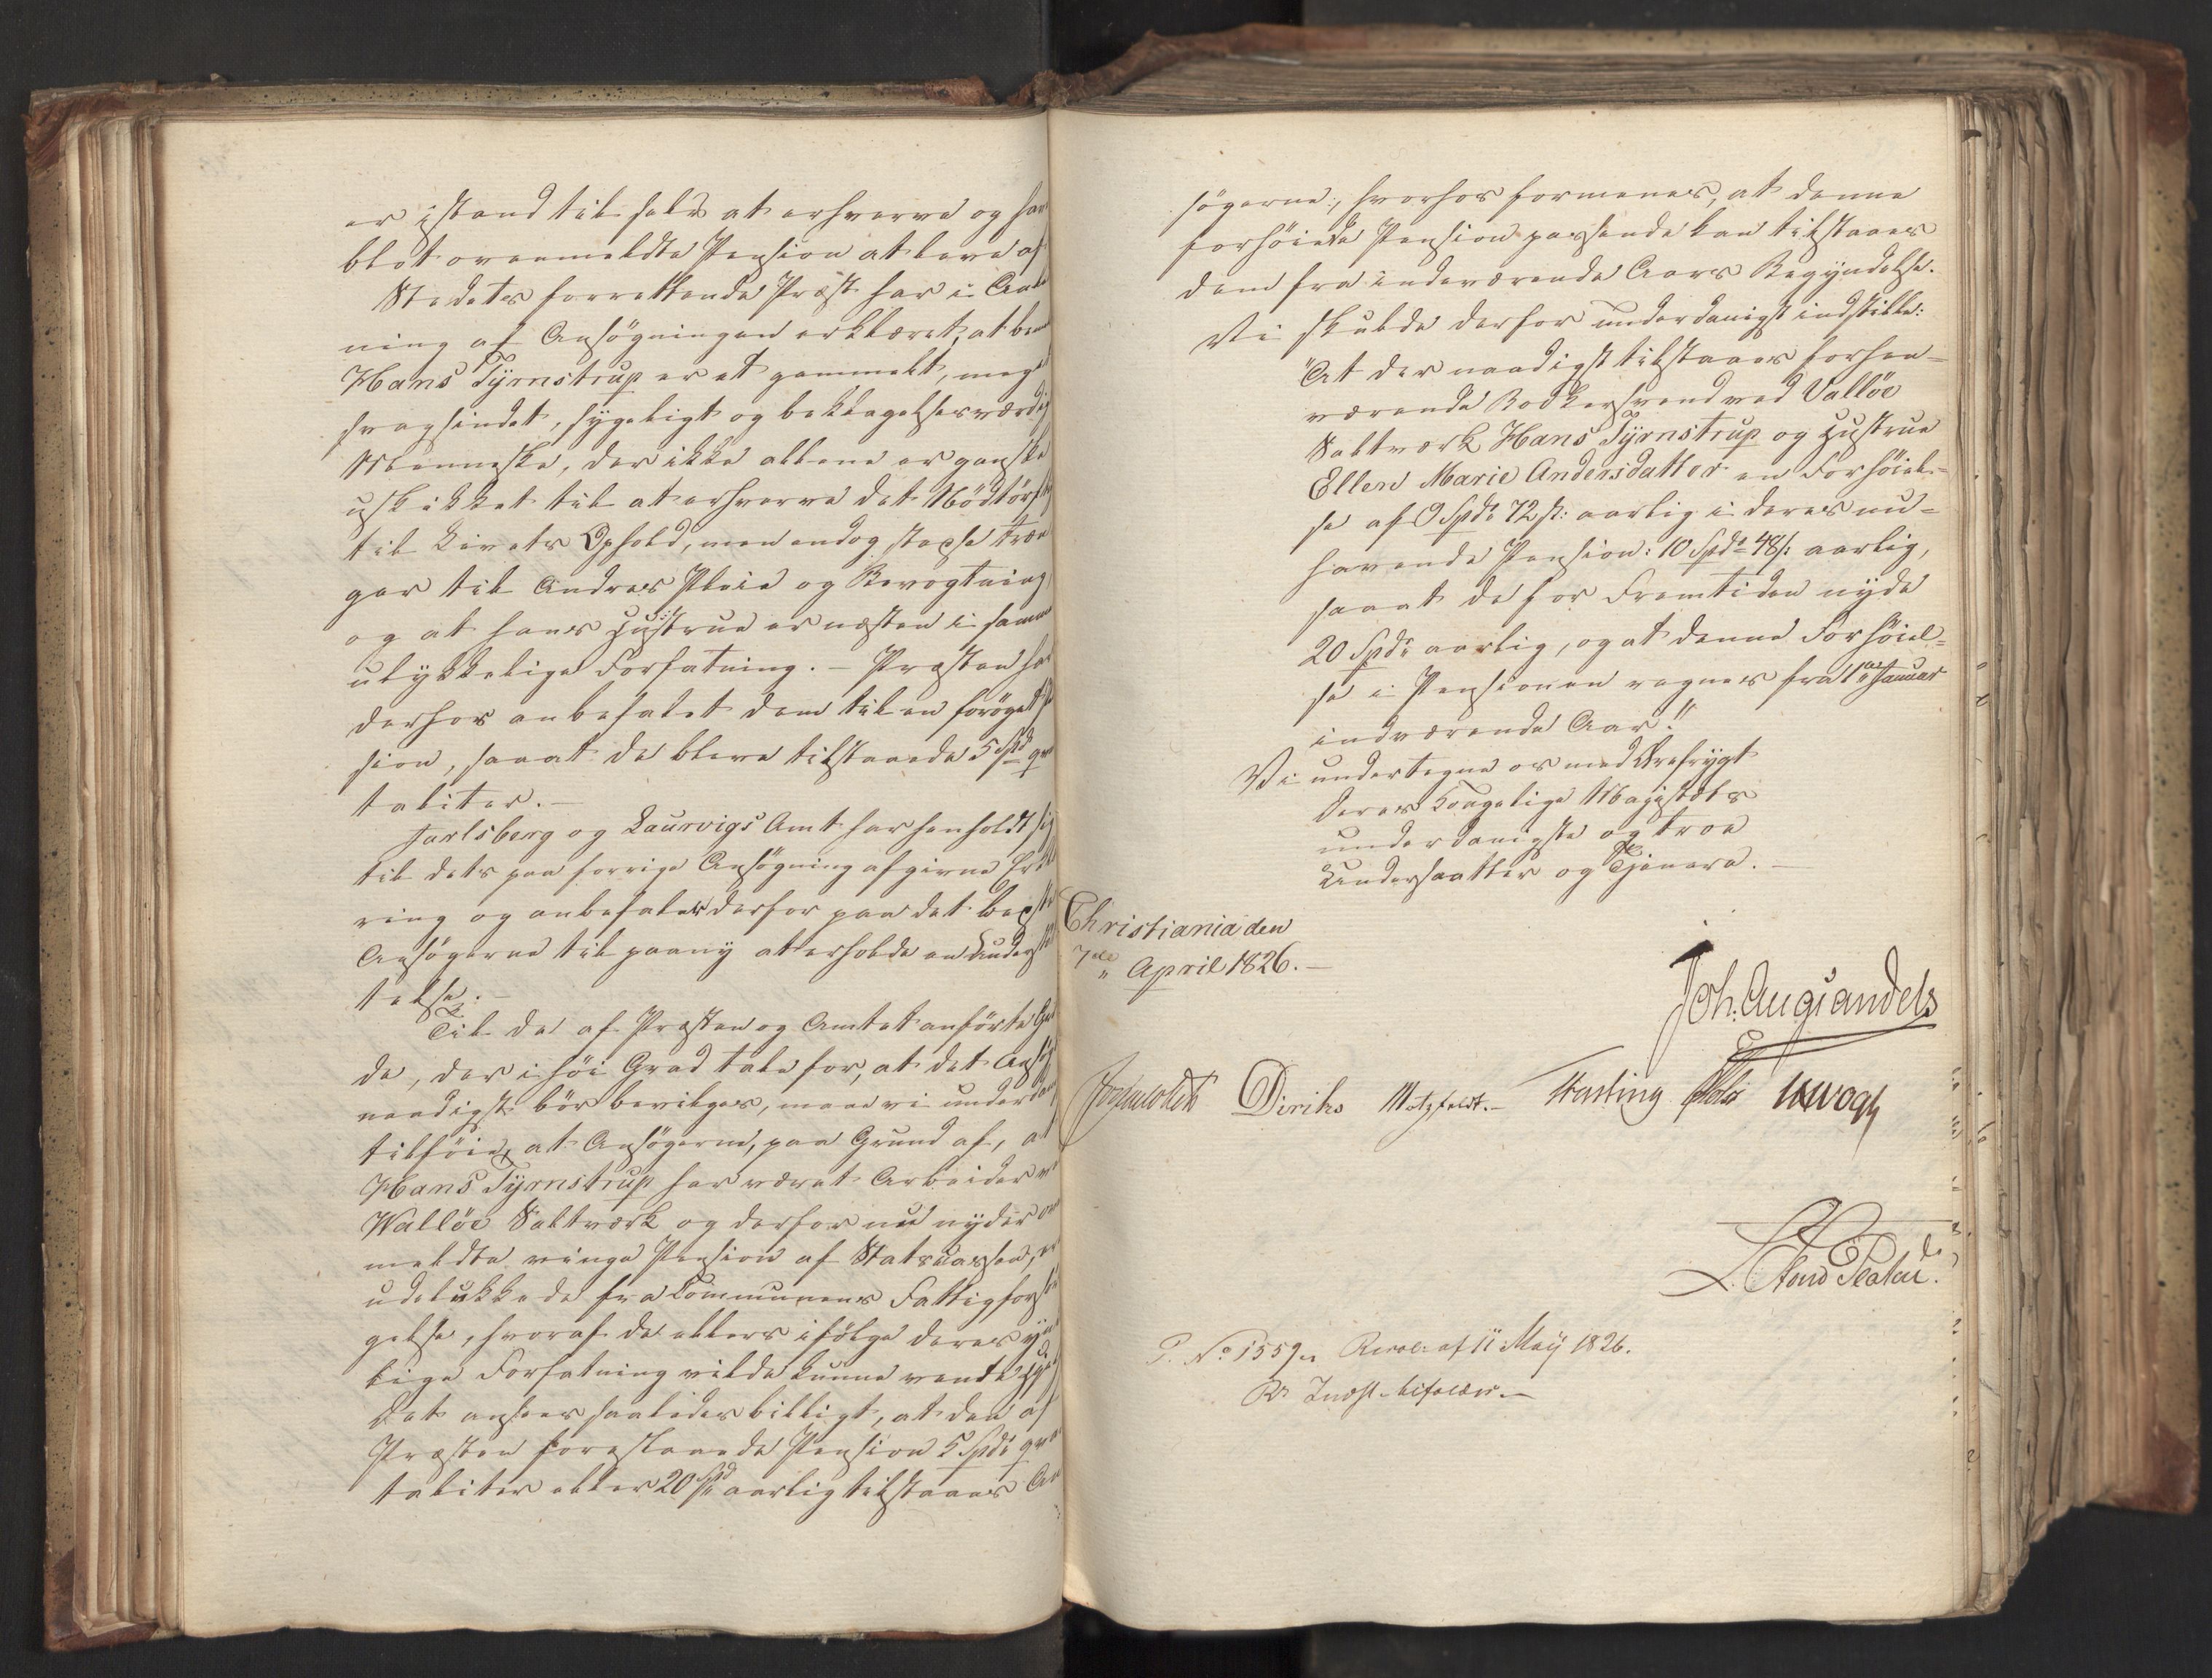 er istand til selv at erhverve og har
blot ovenmeldte Pension at leve af
Stedets forrettende Præst har i Anled
ning af Ansøgningen erklæret, at be
Hans Tyrnstrup er et gammelt, meget
svagsindet, sygeligt og beklagelsesværdig
Menneske, der ikke allene er ganske
uskikket til at erhverve det Nödtörf
til Livets Ophold, men endog stepse træn
ger til Andres Pleie og Bevogtning,
og at hans Hustrue er næsten i samme
ulykkelige Forfatning. – Præsten har
derhos anbefalet dem til en forøget Pen
sion, saaat de bleve tilstaaede 5 Spd qvar
taliter. –
Jarlsberg og Laurvigs Amt har henholdt sig
til dets paa forrige Ansøgning afgivne Erklæ
ring og anbefaler derfor paa det bedste
Ansøgerne til paany at erholde en Understöt
telse. –
Til de af Præsten og Amtet anförte Grun
de, der i höi Grad tale for, at det Ansögte
naadigst bör bevilges, maae vi underdan
tilföie, at Ansögerne, paa Grund af, at
Hans Tyrnstrup har været Arbeider ve
Wallöe Saltværk og derfor nu nyder oven
meldte ringe Pension af Statscassen, er
udelukkede fra Communens Fattigforsör
gelse, hvoraf de ellers ifölge deres ynk
lige Forfatning vilde kunne vente Hjelp
Det ansees saaledes billigt, at den af
Præsten foreslaaede Pension 5 Spd: qvar
taliter eller 20 Spd aarlig tilstaaes An
sögerne, hvorhos formenes, at denne
forhöiede Pension passende kan tilstaaes
dem fra indeværende Aars Begyndelse.
Vi skulde derfor underdanigst indstille:
"At der naadigst tilstaaes forhen=
værende Bödkersvend ved Vallöe
Saltverk Hans Tyrnstrup og Hustrue
Ellen Marie Andersdatter en Forhöiel=
se af 9 Spd: 72 s: aarlig i deres nu=
havende Pension: 10 Spd: 48 s: aarlig,
saaat de for Fremtiden nyde
20 Spd: aarlig, og at denne Forhöiel=
se i Pensionen regnes fra 1ste Januar
indeværende Aar."
Vi undertegne os med Ærefrygt
Deres Kongelige Majestæts
underdanigste og troe
Undersaatter og Tjenere. –
Christiania den
7de April 1826. –
Joh: Aug Sandels
Diriks Motzfeldt. – Fasting Holst Vogh
P. No 1559. Resol: af 11 May 1826.
Rs Indst. bifaldes. –